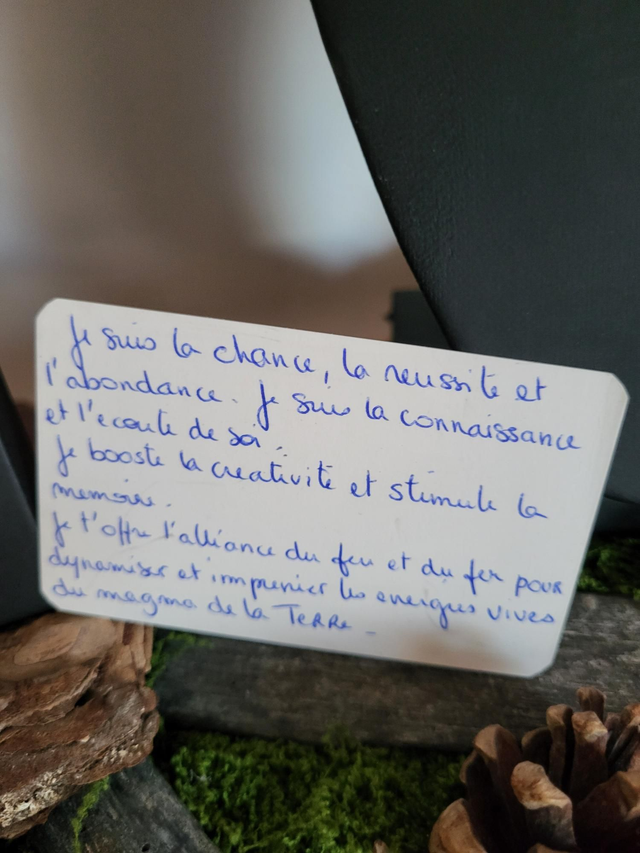 Je suis la chance, la reussite et
l'abondance. Je suis la connaissance
et l'ecoute de soi.
Je booste la creativité et stimule la
memoire.
Je t'offre l'alliance du feu et du fer pour
dynamiser et imprenier les energies vives
du magma de la TERRe -